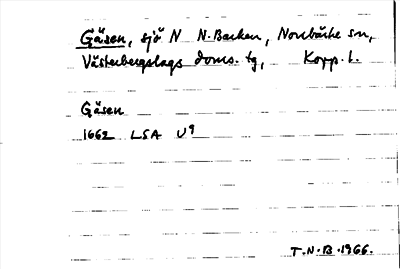 Gåsen, sjö N N. Barken, Norrbärke sn,
Västerbergslags doms. tg, Kopp. l.
Gåsen
1662 LSA U9
T.N.B. 1966.